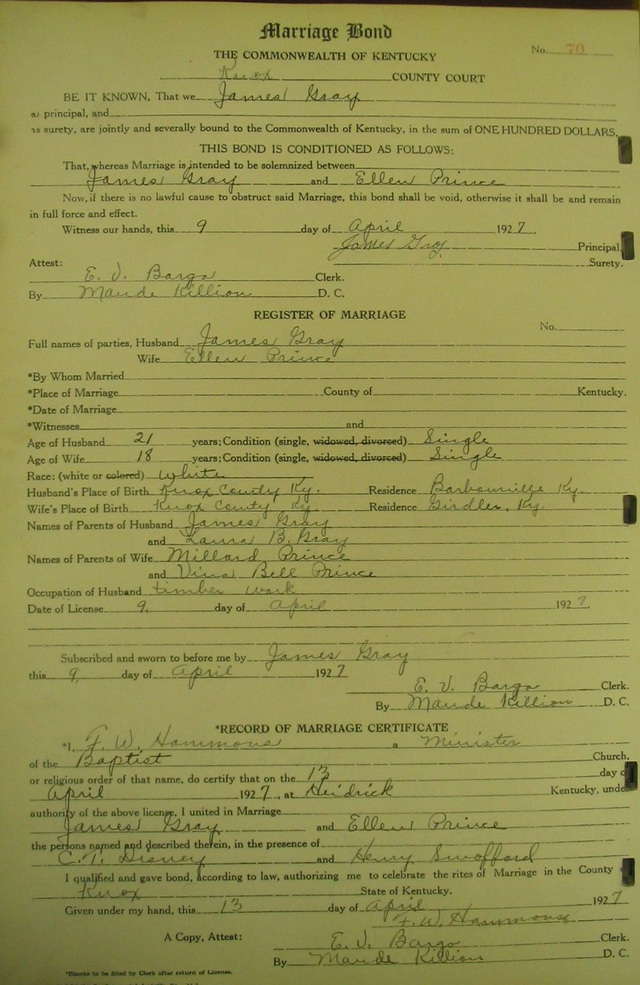 Marriage Bond
No. 70
THE COMMONWEALTH OF KENTUCKY
Knox COUNTY COURT
BE IT KNOWN, That we James Gray
as principal, and
as surety, are jointly and severally bound to the Commonwealth of Kentucky, in the sum of ONE HUNDRED DOLLARS.
THIS BOND IS CONDITIONED AS FOLLOWS:
That, whereas Marriage is intended to be solemnized between
James Gray and Ellen Prince
Now, if there is no lawful cause to obstruct said Marriage, this bond shall be void, otherwise it shall be and remain
in full force and effect.
Witness our hands, this 9 day of April 1927.
James Gray Principal.
Surety.
Attest:
E. V. Bargo Clerk.
By Maude Killion D. C.
REGISTER OF MARRIAGE
No.
Full names of parties, Husband James Gray
Wife Ellen Prince
*By Whom Married
*Place of Marriage County of Kentucky.
*Date of Marriage
*Witnesses and
Age of Husband 21 years; Condition (single, widowed, divorced) Single
Age of Wife 18 years; Condition (single, widowed, divorced) Single
Race: (white or colored) White
Husband's Place of Birth Knox County Ky. Residence Barbourville Ky.
Wife's Place of Birth Knox County Ky. Residence Girdler, Ky.
Names of Parents of Husband James Gray
and Laura B. Gray
Names of Parents of Wife Millard Prince
and Vina Bell Prince
Occupation of Husband timber work
Date of License 9. day of April 1927.
Subscribed and sworn to before me by James Gray
this 9 day of April 1927
E. V. Bargo Clerk.
By Maude Killion D. C.
*RECORD OF MARRIAGE CERTIFICATE
*I, F. W. Hammons a Minister
of the Baptist Church,
or religious order of that name, do certify that on the 13 day o
April 1927, at Heidrick Kentucky, unde
authority of the above license, I united in Marriage
James Gray and Ellen Prince
the persons named and described therein, in the presence of
C. T. Disney and Henry Swofford
I qualified and gave bond, according to law, authorizing me to celebrate the rites of Marriage in the County
Knox State of Kentucky.
Given under my hand, this 13 day of April 1927
F. W. Hammons
A Copy, Attest: E. V. Bargo Clerk.
By Maude Killion D. C.
*Blanks to be filled by Clerk after return of License.